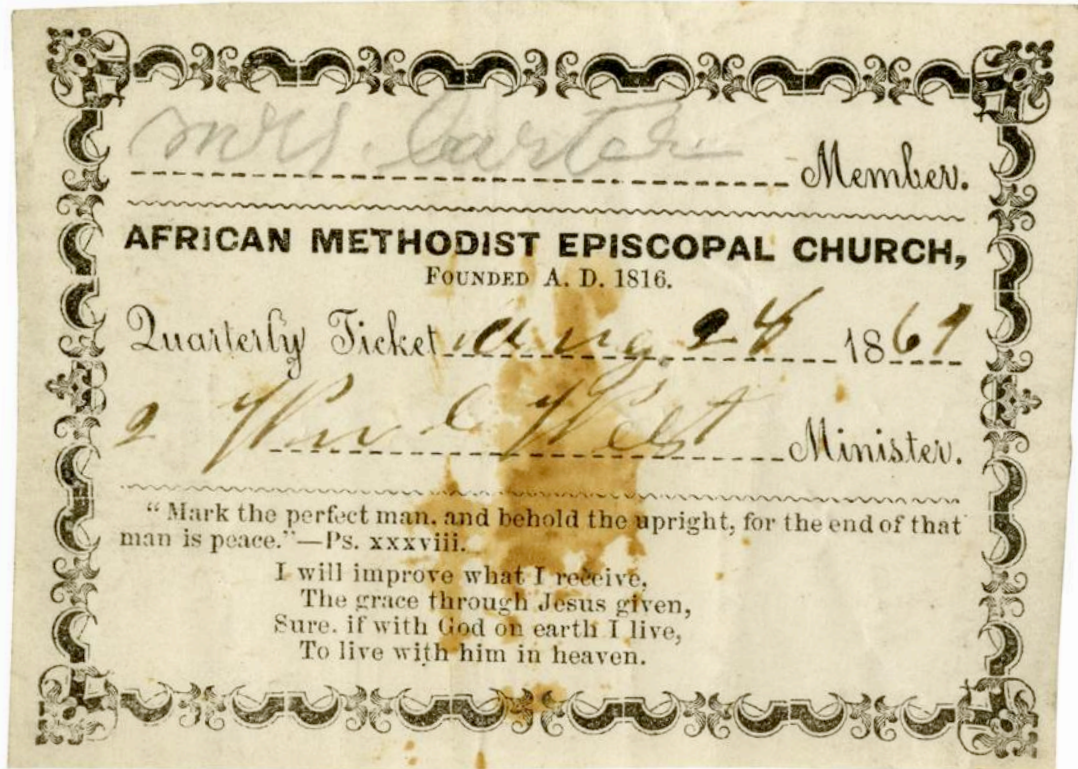 Mrs. Carter Member.
AFRICAN METHODIST EPISCOPAL CHURCH,
FOUNDED A. D. 1816.
Quarterly Ticket Aug 28 1867
Wm C West Minister.
“Mark the perfect man, and behold the upright, for the end of that
man is peace.”—Ps. xxxviii.
I will improve what I receive,
The grace through Jesus given,
Sure, if with God on earth I live,
To live with him in heaven.